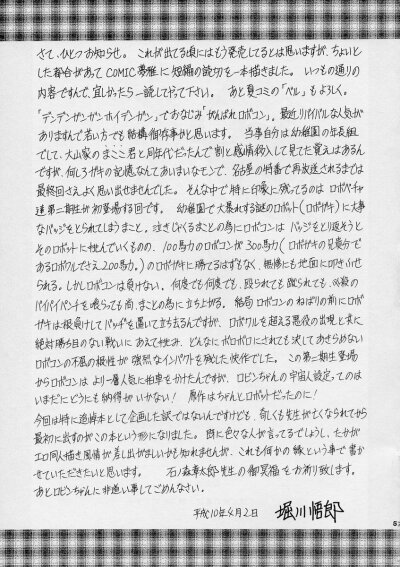 さて、ひとつお知らせ。これが出てる頃にはもう発売してるとは思いますが、ちょいと
した都合があってCOMIC夢雅に短編の読切を一本描きました。いつもの通りの
内容ですんで、宜しかったら一読してやって下さい。あと夏コミの「ベル」もよろしく。
「デンデンガンガンホイデンガン」でおなじみ「がんばれロボコン」。最近リバイバルな人気が
ありますんで若い方でも結構御存知かと思います。当事自分は幼稚園の年長組
でして、大山家のまこと君と同年代だったんで割と感情移入して見てた覚えはあるん
ですが、何しろガキの記憶なんてあいまいなモンで、名古屋の特番で再放送されるまでは
最終回さえよく思い出せませんでした。そんな中で特に印象に残ってるのはロボガキ
達第二期生が初登場する回です。幼稚園で大暴れする謎のロボット(ロボガキ)に大事
なバッジをとられてしまうまこと。泣きじゃくるまことの為にロボコンはバッジをとり返そうと
そのロボットに挑んでいくものの、100馬力のロボコンが300馬力(ロボガキの兄貴分で
あるロボワルでさえ200馬力。)のロボガキに勝てるはずもなく、無惨にも地面に叩きふせ
られる。しかしロボコンは負けない。何度でも何度でも、殴られても蹴られても、必殺の
パイパイパンチを喰らっても尚、まことの為に立ち上がる。結局ロボコンのねばりの前にロボ
ガキは根負けしてバッヂを置いて立ち去るんですが、ロボワルを超える悪役の出現と共に
絶対勝ち目のない戦いにあえて挑み、どんなにボロボロにされても決してあきらめない
ロボコンの不屈の根性が強烈なインパクトを残した快作でした。この第二期生登場
からロボコンはより一層人気に拍車をかけたんですが、ロビンちゃんの宇宙人設定ってのは
いまだにどうにも納得がいかない! 原作はちゃんとロボットだったのに!
今回は特に追悼本として企画した訳ではないんですけども、奇しくも先生が亡くなられてから
最初に出すのがこの本という形になりました。既に色々な人が言ってるでしょうし、たかが
エロ同人描き風情が差し出がましいかも知れませんが、これも何かの縁という事で書か
せていただきたいと思います。石ノ森章太郎先生の御冥福をお祈り致します。
あとロビンちゃんに非道い事してごめんなさい。
平成10年4月2日 堀川悟郎